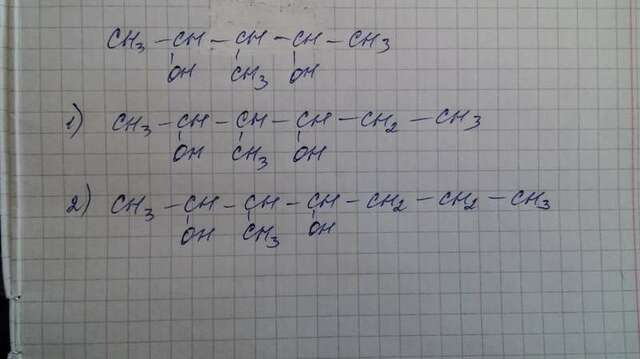 CH3 - CH - CH - CH - CH3
OH CH3 OH
1) CH3 - CH - CH - CH - CH2 - CH3
OH CH3 OH
2) CH3 - CH - CH - CH - CH2 - CH2 - CH3
OH CH3 OH